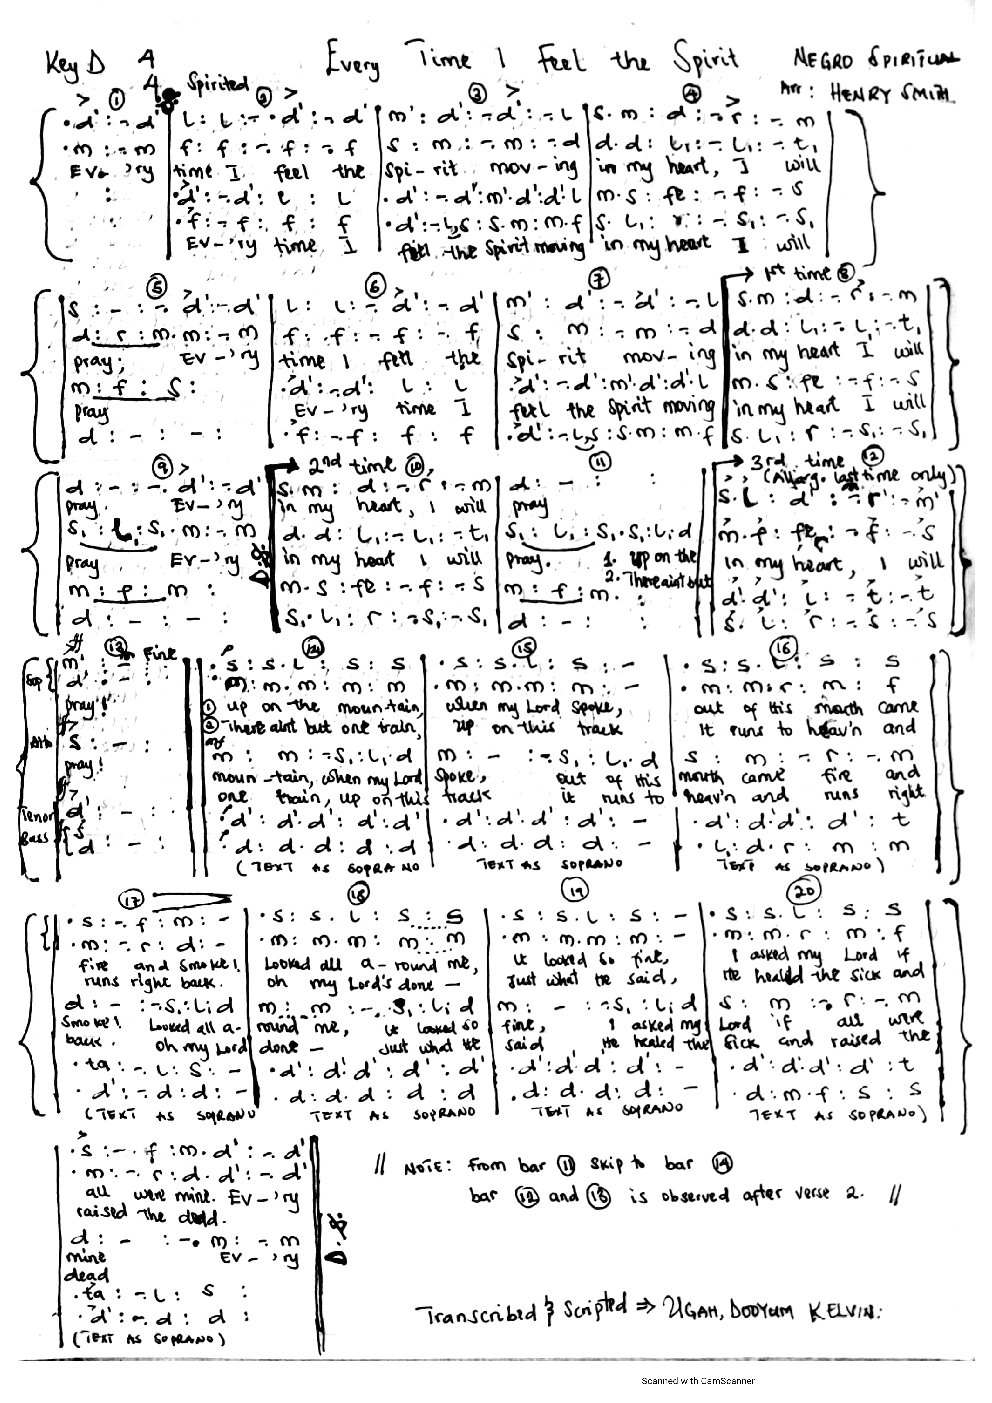 Key D 4 Every Time I Feel the Spirit NEGRO SPIRITUAL
4 Spirited Arr: HENRY SMITH
① ② ③ ④
.d' :- d' | l : l :- . d' :- d' | m' : d' :- d' :- l | s . m : d :- r :- m
.m :- m | f : f :- f :- f | s : m :- m :- d | d . d : l₁ :- l₁ :- t₁
Ev - 'ry time I feel the spi - rit mov - ing in my heart, I will
.d' :- d' : l : l | .d' :- d' : m' . d' : d' . l | m . s : fe :- f :- s
.f :- f : f : f | .d' :- l . s : s . m : m . f | s . l₁ : r :- s₁ :- s₁
Ev - 'ry time I feel the Spirit moving in my heart I will
⑤ ⑥ ⑦ 1st time ⑧
s : - :- d' :- d' | l : l :- d' :- d' | m' : d' :- d' :- l | s . m : d :- r :- m
d : r : m . m :- m | f : f :- f :- f | s : m :- m :- d | d . d : l₁ :- l₁ :- t₁
pray; Ev - 'ry time I fell the spi - rit mov - ing in my heart I will
m : f : s : | .d' :- d' : l : l | .d' :- d' : m' . d' : d' . l | m . s : fe :- f :- s
pray Ev - 'ry time I feel the Spirit moving in my heart I will
d : - : - : | .f :- f : f : f | .d' :- l . s : s . m : m . f | s . l₁ : r :- s₁ :- s₁
⑨ 2nd time ⑩ ⑪ 3rd time ⑫
(Allarg. last time only)
d : - :- d' :- d' | s . m : d :- r :- m | d : - : - : | s . l : d' :- r' :- m'
pray. Ev - 'ry in my heart, I will pray
s₁ : l₁ : s₁ . m :- m | d . d : l₁ :- l₁ :- t₁ | s₁ : l₁ : s₁ . s₁ : l₁ . d | m . f : fe :- f :- s
pray Ev - 'ry in my heart I will pray. 1. Up on the in my heart, I will
2. There aint but
m : f : m : | m . s : fe :- f :- s | m : f : m . : | d' . d' : l :- t :- t
d : - : - : | s₁ . l₁ : r :- s₁ :- s₁ | d : - : : | s . l : r :- s :- s
D.S
⑬ Fine ⑭ ⑮ ⑯
Sop m' : - : | . s : s . l : s : s | . s : s . l : s : - | . s : s . l : s : s
d' : - : | . m : m . m : m : m | . m : m . m : m : - | . m : m . r : m : f
pray! ① up on the moun-tain, when my Lord spoke, out of His mouth came
② There aint but one train, up on this track It runs to heav'n and
Alto s : - : | m : m :- s₁ : l₁ . d | m : - :- s₁ : l₁ . d | s : m :- r :- m
pray! moun-tain, when my Lord spoke, out of His mouth came fire and
one train, up on this track it runs to heav'n and runs right
Tenor d' : - : | . d' : d' . d' : d' : d' | . d' : d' . d' : d' : - | . d' : d' . d' : d' : t
Bass d : - : | . d : d . d : d : d | . d : d . d : d : - | . l₁ : d . r : m : m
(TEXT AS SOPRANO TEXT AS SOPRANO TEXT AS SOPRANO)
⑰ ⑱ ⑲ ⑳
. s :- f : m : - | . s : s . l : s : s | . s : s . l : s : - | . s : s . l : s : s
. m :- r : d : - | . m : m . m : m : m | . m : m . m : m : - | . m : m . r : m : f
fire and smoke! Looked all a-round me, It looked so fine, I asked my Lord if
runs right back. oh my Lord's done - Just what He said, He healed the sick and
d : - :- s₁ : l₁ . d | m : m :- s₁ : l₁ . d | m : - :- s₁ : l₁ . d | s : m :- r :- m
Smoke! Looked all a-round me, it looked so fine, I asked my Lord if all were
back. oh my Lord done - Just what He said He healed the sick and raised the
. ta :- l : s : - | . d' : d' . d' : d' : d' | . d' : d' . d' : d' : - | . d' : d' . d' : d' : t
. d' :- d : d : - | . d : d . d : d : d | . d : d . d : d : - | . d : m . f : s : s
(TEXT AS SOPRANO TEXT AS SOPRANO TEXT AS SOPRANO TEXT AS SOPRANO)
. s :- f : m . d' :- d'
. m :- r : d . d' :- d'
all were mine. Ev - 'ry
raised the dead.
d : - :- . m :- m
mine Ev - 'ry
dead
. ta :- l : s :
. d' :- d : d :
(TEXT AS SOPRANO)
D.S
// NOTE: From bar ⑪ skip to bar ⑭
bar ⑫ and ⑬ is observed after verse 2. //
Transcribed & Scripted ⇒ UGAH, DOOYUM KELVIN.
Scanned with CamScanner